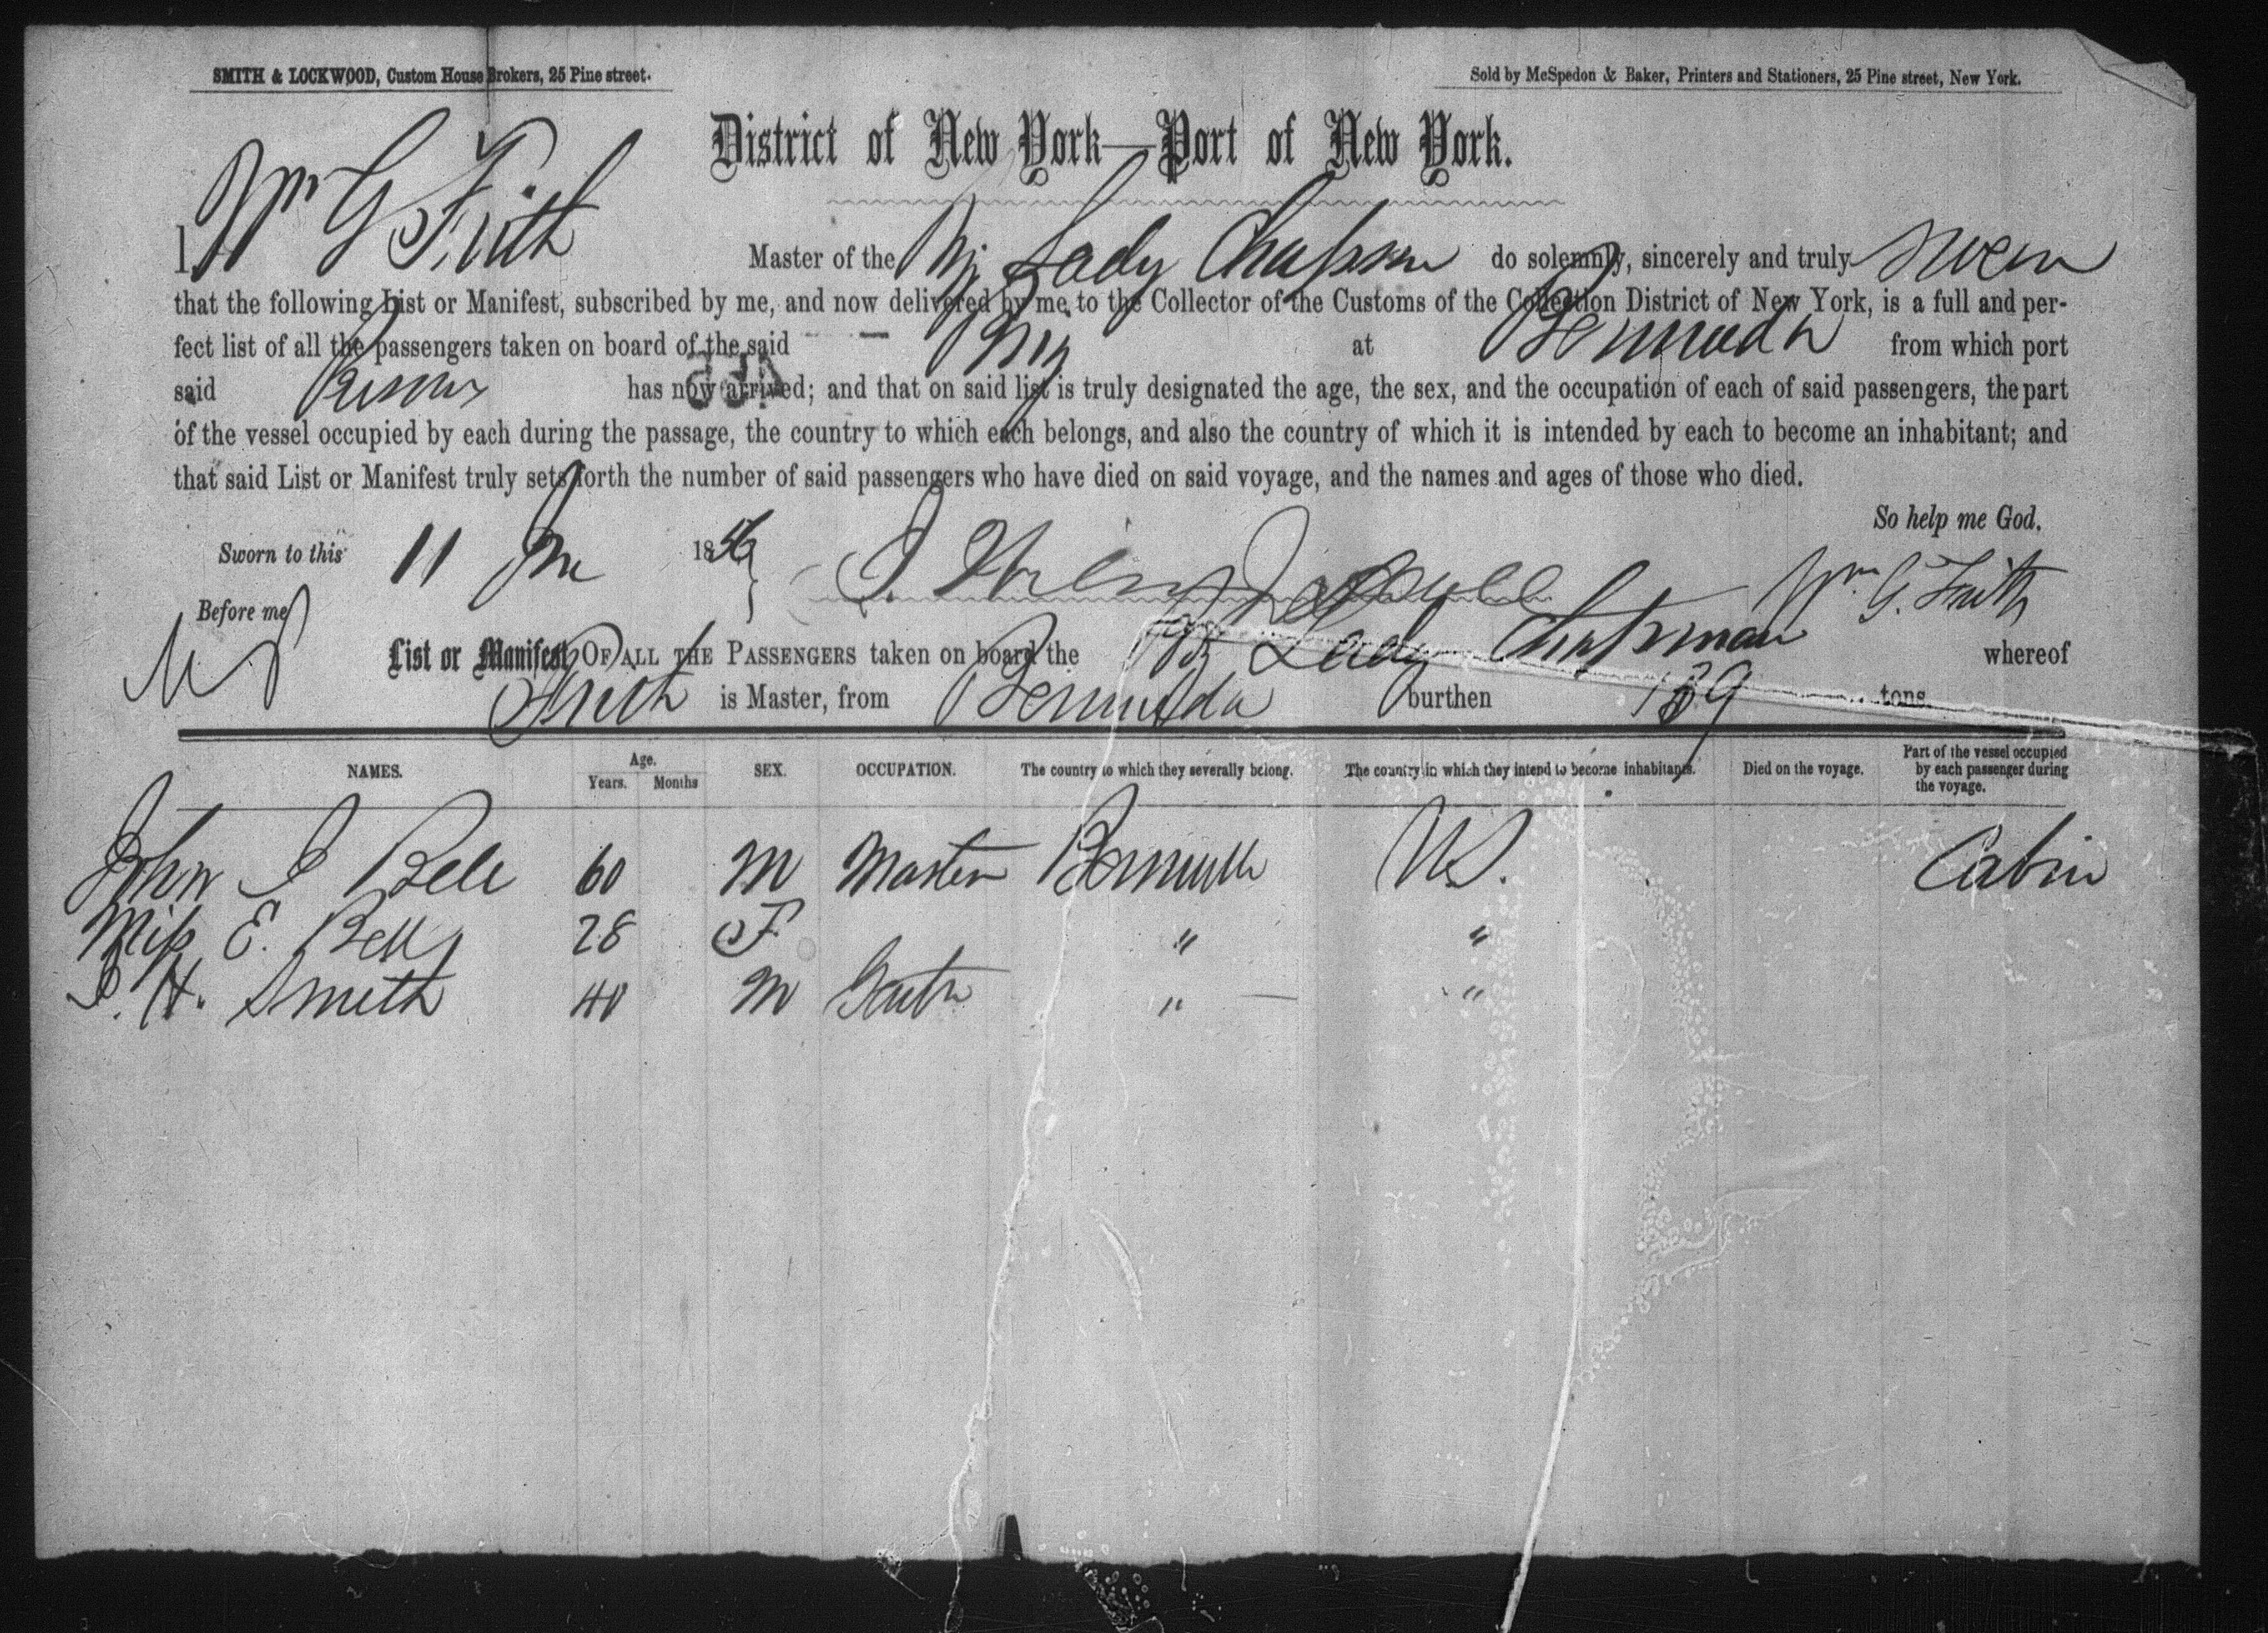 SMITH & LOCKWOOD, Custom House Brokers, 25 Pine street.
Sold by McSpedon & Baker, Printers and Stationers, 25 Pine street, New York.
District of New York—Port of New York.
I, Wm G Frith Master of the Brig Lady Chapman do solemnly, sincerely and truly swear
that the following List or Manifest, subscribed by me, and now delivered by me to the Collector of the Customs of the Collection District of New York, is a full and per-
fect list of all the passengers taken on board of the said Brig at Bermuda from which port
said has now arrived; and that on said list is truly designated the age, the sex, and the occupation of each of said passengers, the part
of the vessel occupied by each during the passage, the country to which each belongs, and also the country of which it is intended by each to become an inhabitant; and
that said List or Manifest truly sets forth the number of said passengers who have died on said voyage, and the names and ages of those who died.
So help me God.
Sworn to this 11 1856
Wm. G. Frith
Before me
List or Manifest OF ALL THE PASSENGERS taken on board the Brig Lady Chapman whereof
Frith is Master, from Bermuda burthen 139 tons.
NAMES. Age. Years. Months SEX. OCCUPATION. The country to which they severally belong. The country in which they intend to become inhabitants. Died on the voyage. Part of the vessel occupied by each passenger during the voyage.
John I Bell 60 M Master Bermuda U.S. Cabin
Miss E. Bell 28 F " "
I. H. Smith 40 M " "